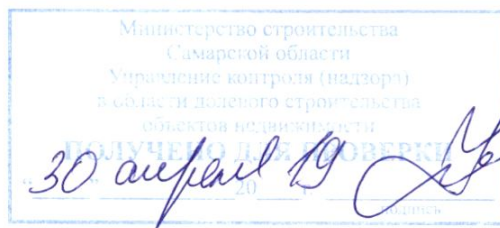 Министерство строительства
Самарской области
Управление контроля (надзора)
в области долевого строительства
объектов недвижимости
ПОЛУЧЕНО ДЛЯ ПРОВЕРКИ
"30" апреля 2019
подпись